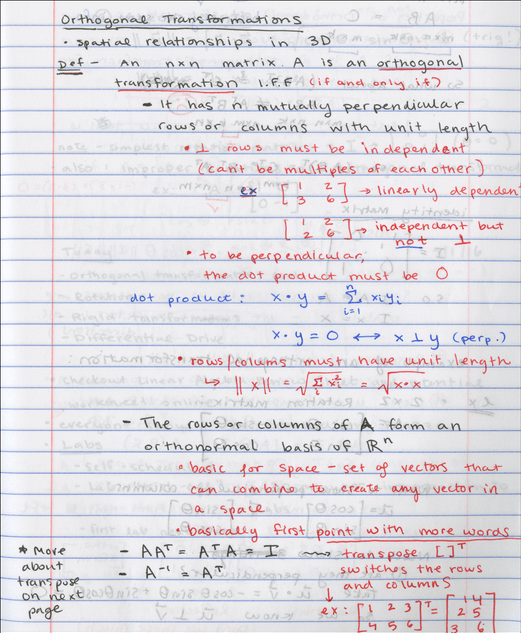 Orthogonal Transformations
• spatial relationships in 3D
Def - An nxn matrix A is an orthogonal
transformation I.F.F (if and only if)
- It has n mutually perpendicular
rows or columns with unit length
• ⊥ rows must be independent
(can't be multiples of each other)
ex [1 2
3 6] → linearly dependent
[1 2
2 6] → independent but
not ⊥
• to be perpendicular,
the dot product must be 0
dot product: x • y = Σ xiyi
n
i=1
x • y = 0 ↔ x ⊥ y (perp.)
• rows/colums must have unit length
↳ ||x|| = √Σi xi² = √x•x
- The rows or columns of A form an
orthonormal basis of ℝⁿ
• basic for space - set of vectors that
can combine to create any vector in
a space
• basically first point with more words
* More about transpose on next page
- AAᵀ = AᵀA = I ⟿ transpose [ ]ᵀ
- A⁻¹ = Aᵀ
switches the rows
and columns
ex: [1 2 3
4 5 6]ᵀ = [1 4
2 5
3 6]